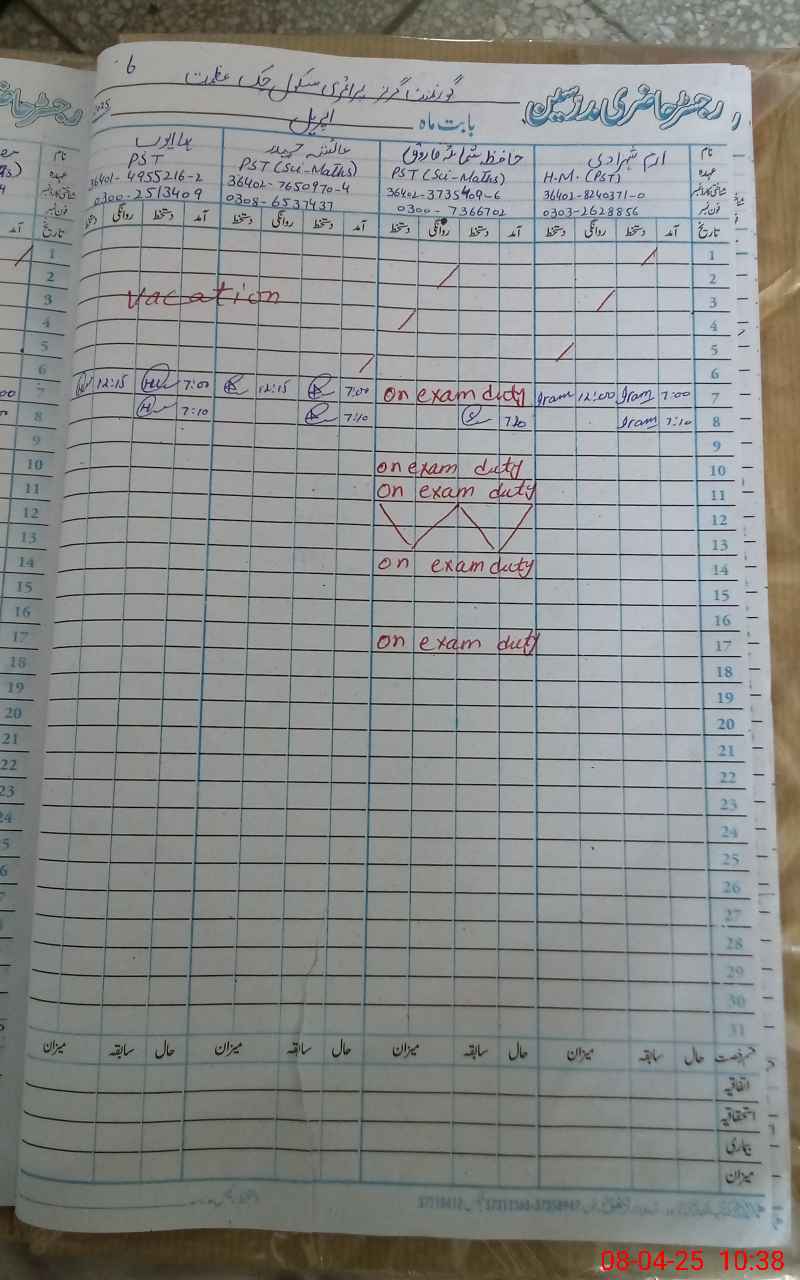 6
گورنمنٹ گرلز پرائمری سکول چک عظمت
رجسٹر حاضری مدرسین
بابت ماہ اپریل 2025
نام ارم شہزادی حافظہ شمائلہ فاروق عائشہ حمید ہما ایوب
عہدہ H.M. (PST) PST (Sci-Maths) PST (Sci-Maths) PST
36402-8240371-0 36402-3735409-6 36402-7650970-4 36401-4955216-2
فون نمبر 0303-2628856 0300-7366702 0308-6537437 0300-2513409
تاریخ آمد دستخط روانگی دستخط آمد دستخط روانگی دستخط آمد دستخط روانگی دستخط آمد دستخط روانگی دستخط
1
2
3 vacation
4
5
6
7 7:00 Iram 12:00 Iram on exam duty 7:00 12:15 7:00 12:15
8 7:10 Iram 7:10 7:10
9
10 on exam duty
11 on exam duty
12
13
14 on exam duty
15
16
17 on exam duty
18
19
20
21
22
23
24
25
26
27
28
29
30
31
حال سابقہ میزان حال سابقہ میزان حال سابقہ میزان حال سابقہ میزان
اتفاقیہ
استحقاقیہ
بیماری
میزان
08-04-25 10:38